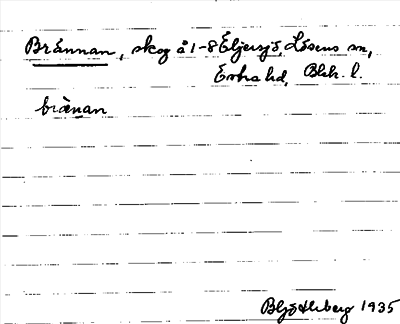 Brännan, skog å 1-8 Eljersjö, Lösens sn,
Östra hd, Blek. l.
brænan
B Ljöstberg 1935